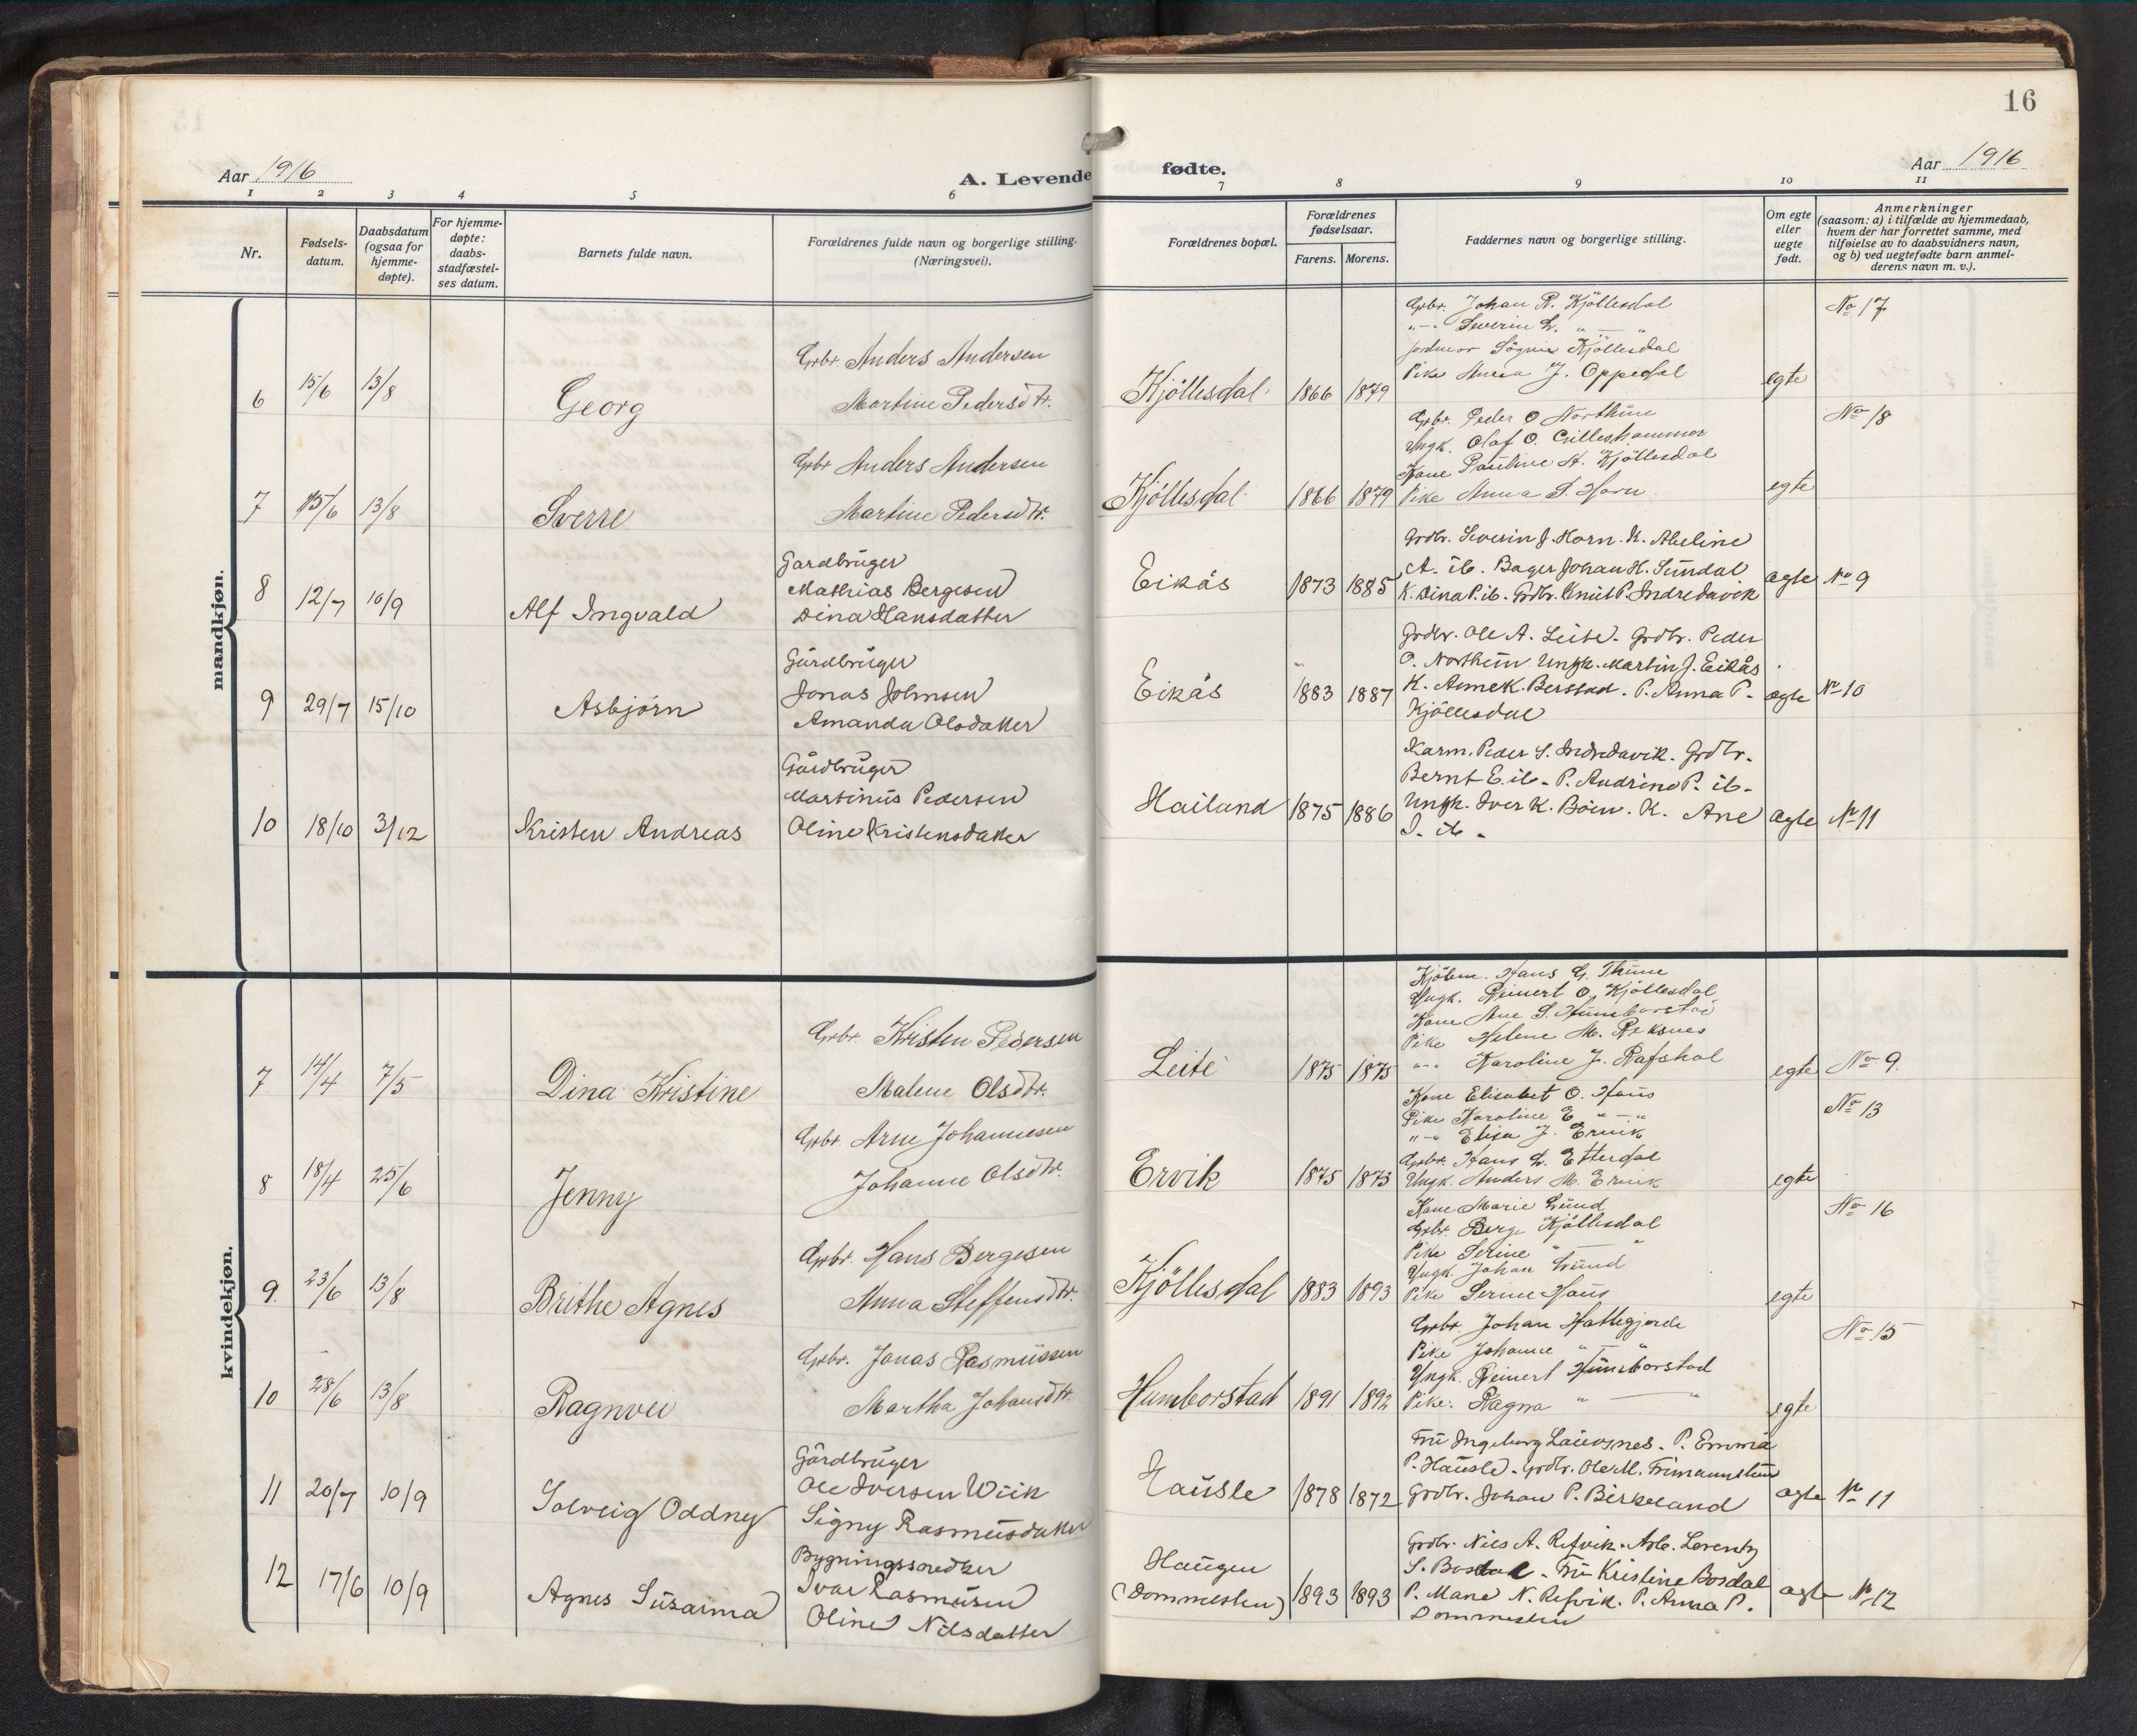 16
Aar 1916
A. Levende fødte.
Aar 1916
1 2 3 4 5 6 7 8 9 10 11
Nr.
Fødsels-
datum.
Daabsdatum
(ogsaa for
hjemme-
døpte).
For hjemme-
døpte:
daabs-
stadfæstel-
ses datum.
Barnets fulde navn.
Forældrenes fulde navn og borgerlige stilling.
(Næringsvei).
Forældrenes bopæl.
Forældrenes
fødselsaar.
Farens. Morens.
Faddernes navn og borgerlige stilling.
Om egte
eller
uegte
født.
Anmerkninger
(saasom: a) i tilfælde av hjemmedaab,
hvem der har forrettet samme, med
tilføielse av to daabsvidners navn,
og b) ved uegtefødte barn anmel-
derens navn m. v.).
mandkjøn.
6 15/6 13/8 Georg
Grbr. Anders Andersen
Martine Pedersdtr.
Kjöllesdal 1866 1879
Grbr. Johan R. Kjöllesdal
"-" Severin L. " — "
Jordmor Sögnie Kjöllesdal
Pike Anna J. Oppedal
egte
No 17
7 15/6 13/8 Sverre
Grbr Anders Andersen
Martine Pedersdtr.
Kjöllesdal 1866 1879
Grbr. Peder O Northun
Ungk. Olaf O. Gilleshammer
Kone Pauline A. Kjöllesdal
Pike Anna S. Horn
egte
No 18
8 12/7 10/9 Alf Ingvald
Gardbruger
Mathias Bergesen
Dina Hansdatter
Eikås 1873 1885
Grdbr. Severin J. Horn. K. Abeline
A. ib. Bager Johan H. Sundal
K. Dina P. ib. Grdbr. Knut P. Indredavik
ægte No 9
9 29/7 15/10 Asbjørn
Gårdbruger
Jonas Johnsen
Amanda Olsdatter
Eikås 1883 1887
Grdbr. Ole A. Leite. Grdbr. Peder
O. Northun Ungk. Martin J. Eikås
K. Anne K. Berstad. P. Anna P.
Kjöllesdal
ægte No 10
10 18/10 3/12 Kristen Andreas
Gårdbruger
Martinus Pedersen
Oline Kristensdatter
Hailand 1875 1886
Karm. Peder S. Indredavik. Grdbr.
Bernt E. ib. P. Andrine P. ib.
Ungk. Iver K. Böen. K. Ane
S. ib.
ægte No 11
kvindekjøn.
7 14/4 7/5 Dina Kristine
Grbr. Kristen Pedersen
Malene Olsdtr.
Leite 1875 1875
Kjöbm. Hans G. Thune
Ungk. Reinert O. Kjöllesdal
Kone Ane S. Humborstad
Pike Helene M. Reksnes
"-" Karoline J. Rafshol
egte No 9.
8 18/4 25/6 Jenny
Grbr Arne Johannesen
Johanne Olsdtr.
Ervik 1875 1873
Kone Elisabet O. Haus
Pike Karoline E " — "
"-" Elisa J. Ervik
Grbr. Hans L. Etterdal
Ungk. Anders M. Ervik
egte
No 13
9. 23/6 13/8 Brithe Agnes
Grbr. Hans Bergesen
Anna Steffensdtr.
Kjöllesdal 1883 1893
Kone Marie Lund
Grbr. Berge Kjöllesdal
Pike Serine " — "
Ungk. Johan Lund
Pike Serine Haus
egte
No 16
10 28/6 13/8 Ragnvei
Grbr. Jonas Rasmussen
Martha Johansdtr.
Humborstad 1891 1892
Grbr. Johan Hattegjerde
Pike Johanne " — "
Ungk. Reinert Humborstad
Pike. Ragna " — "
egte
No 15
11 20/7 10/9 Solveig Oddny
Gårdbruger
Ole Iversen Wiik
Signy Rasmusdatter
Hausle 1878 1872
Fru Ingeborg P. Emma
P. Hausle. Grdbr. Ole M.
Grdbr. Johan P. Birkeland
ægte No 11
12 17/6 10/9 Agnes Susanna
Bygningssnedker
Ivar Rasmusen
Oline Nilsdatter
Haugen
(Dommesten) 1893 1893
Grdbr. Nils A. Refvik. Arb. Lorentz
S. Bosdal. Fru Kristine Bosdal
P. Mane N. Refvik. P. Anna P.
Dommesten
ægte No 12